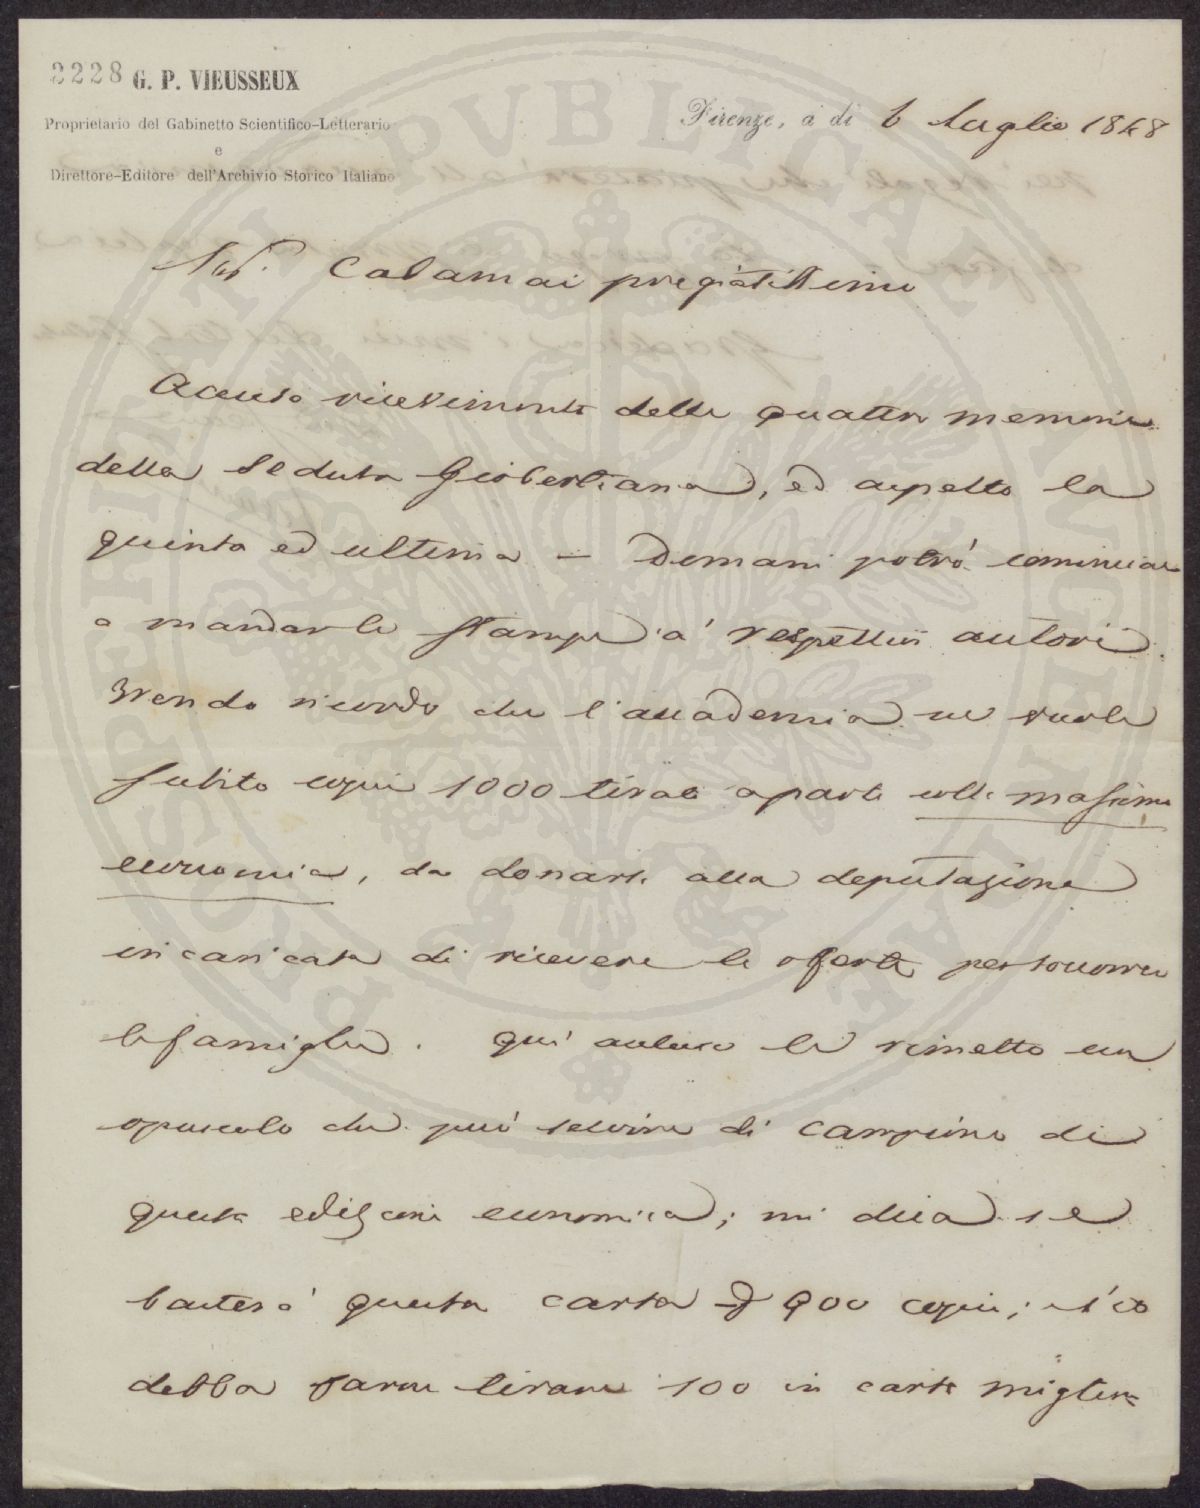 2228 G. P. VIEUSSEUX
Proprietario del Gabinetto Scientifico-Letterario
e
Direttore-Editore dell'Archivio Storico Italiano
Firenze, a dì 6 Luglio 1848
Sigr. Calamai pregiatissimo
Accuso ricevimento delle quattro memorie
della seduta Giobertiana, ed aspetto la
quinta ed ultima — Domani potrò cominciare
a mandar le stampe a' respettivi autori.
Prendo ricordo che l'accademia ne vuole
subito copie 1000 tirate a parte colla massima
economia, da donarsi alla deputazione
incaricata di ricevere le offerte per soccorrere
le famiglie. Qui acluso le rimetto un
opuscolo che può servire di campione di
questa edizione economica; mi dica se
basterà questa carta p 900 copie; e s'io
debba farne tirare 100 in carta migliore